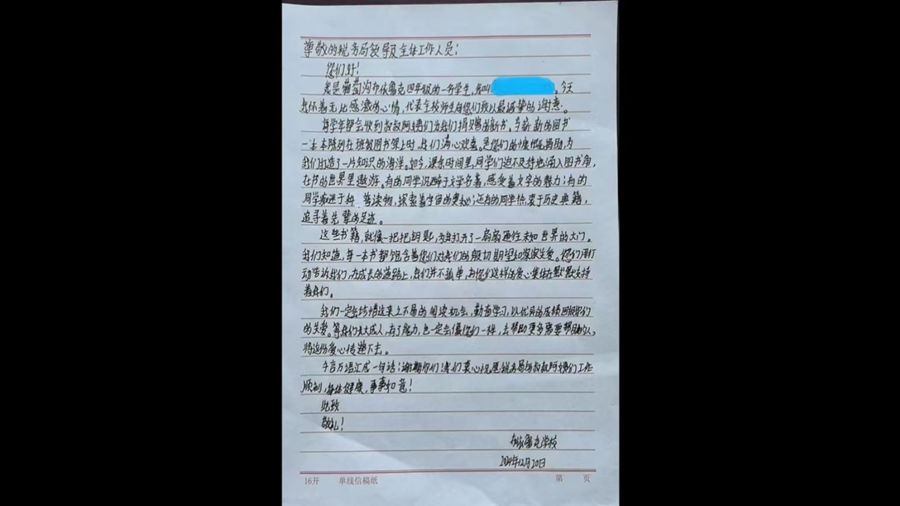 尊敬的税务局领导及全体工作人员:
您们好!
我是葡萄沟布依鲁克四年级的一名学生,我叫 。今天
我怀着无比感激的心情,代表全校师生向您们致以最诚挚的谢意。
每学年都会收到叔叔阿姨们为我们捐赠的新书。当崭新的图书
一本本陈列在班级图书架上时,我们满心欢喜。是您们的慷慨相助,为
我们打造了一片知识的海洋。如今,课余时间里,同学们迫不及待地涌入图书角,
在书的世界里遨游。有的同学沉醉于文学名著,感受着文字的魅力;有的
同学痴迷于科普读物,探索着宇宙的奥秘;还有的同学热衷于历史典籍,
追寻着先辈的足迹。
这些书籍,就像一把把钥匙,为我打开了一扇扇通往未知世界的大门。
我们知道,每一本书都饱含着您们对我们的殷切期望和深深关爱。您们用行
动告诉我们,在成长的道路上,我们并不孤单,有您们这样的爱心集体在默默支持
着我们。
我们一定会珍惜这来之不易的阅读机会,勤奋学习,以优异的成绩回报您们
的关爱。等我们长大成人,有了能力,也一定会像您们一样,去帮助更多需要帮助的人,
将这份爱心传递下去。
千言万语汇成一句话:谢谢你们!我们衷心祝愿税务局的叔叔阿姨们工作
顺利,身体健康,事事如意!
此致
敬礼!
布依鲁克学校
2024年12月20日
16开 单线信稿纸 第 页